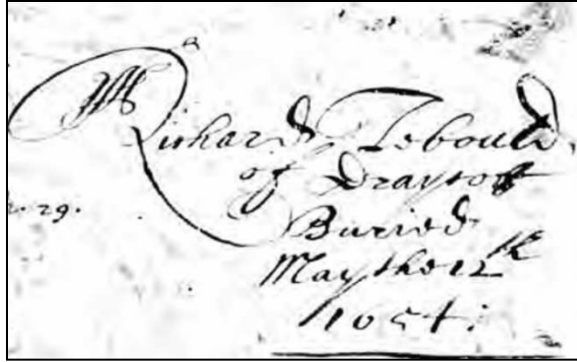 Mr
Richard Tebould,
of Drayton
29.
Buried
May the 12th
1654: